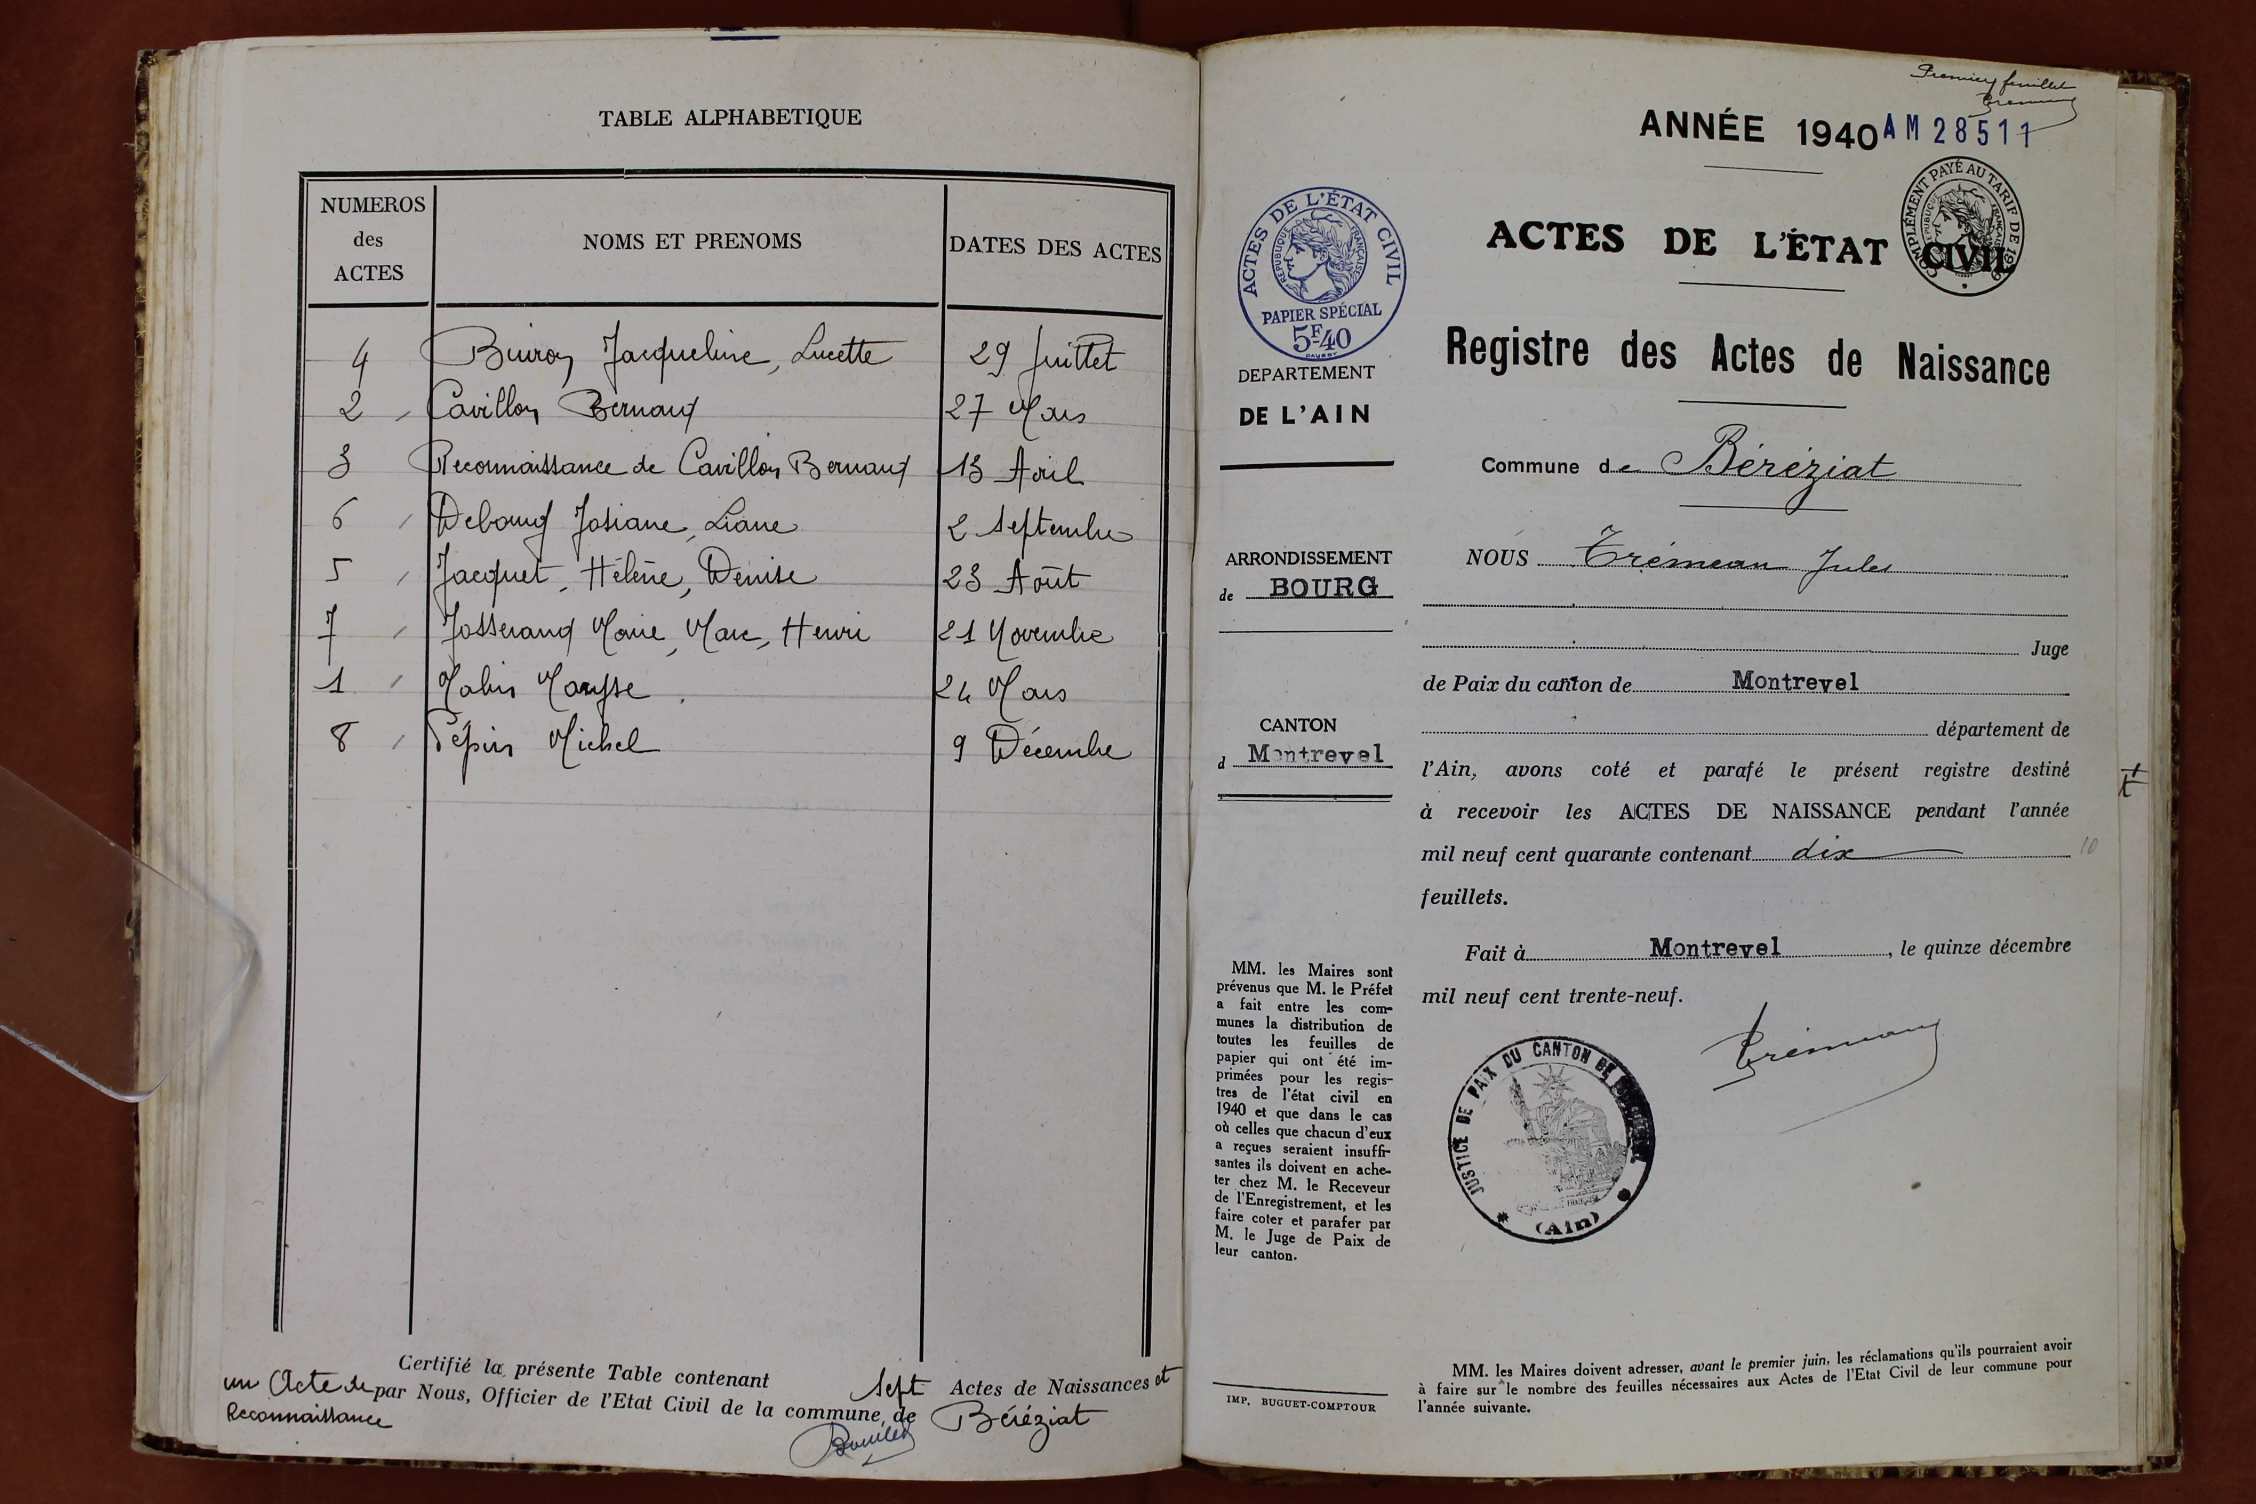 TABLE ALPHABETIQUE
NUMEROS
des
ACTES
NOMS ET PRENOMS
DATES DES ACTES
4 Buiron Jacqueline, Lucette 29 Juillet
2 Cavillon Bernard 27 Mars
3 Reconnaissance de Cavillon Bernard 13 Avril
6 Debourg Josiane, Liane 2 Septembre
5 Jacquet, Hélène, Denise 23 Août
7 Josserand Marie, Marc, Henri 21 Novembre
1 Maryse 24 Mars
8 Pépin Michel 9 Décembre
Certifié la présente Table contenant sept Actes de Naissances et
un Acte de par Nous, Officier de l'Etat Civil de la commune de Béréziat
Reconnaissance
Premier feuillet
ANNÉE 1940 AM 28511
COMPLÉMENT PAYÉ AU TARIF DE 1939
RÉPUBLIQUE FRANÇAISE
ACTES DE L'ÉTAT CIVIL
ACTES DE L'ÉTAT CIVIL
RÉPUBLIQUE FRANÇAISE
PAPIER SPÉCIAL
5F40
Registre des Actes de Naissance
DEPARTEMENT
DE L'AIN
Commune de Béréziat
ARRONDISSEMENT
de BOURG
CANTON
d Montrevel
NOUS Trémeau Jules
Juge
de Paix du canton de Montrevel
département de
l'Ain, avons coté et parafé le présent registre destiné
à recevoir les ACTES DE NAISSANCE pendant l'année
mil neuf cent quarante contenant dix 10
feuillets.
Fait à Montrevel, le quinze décembre
mil neuf cent trente-neuf.
Trémeau
JUSTICE DE PAIX DU CANTON DE
(Ain)
MM. les Maires sont
prévenus que M. le Préfet
a fait entre les com-
munes la distribution de
toutes les feuilles de
papier qui ont été im-
primées pour les regis-
tres de l'état civil en
1940 et que dans le cas
où celles que chacun d'eux
a reçues seraient insuffi-
santes ils doivent en ache-
ter chez M. le Receveur
de l'Enregistrement, et les
faire coter et parafer par
M. le Juge de Paix de
leur canton.
IMP. BUGUET-COMPTOUR
MM. les Maires doivent adresser, avant le premier juin, les réclamations qu'ils pourraient avoir
à faire sur le nombre des feuilles nécessaires aux Actes de l'Etat Civil de leur commune pour
l'année suivante.